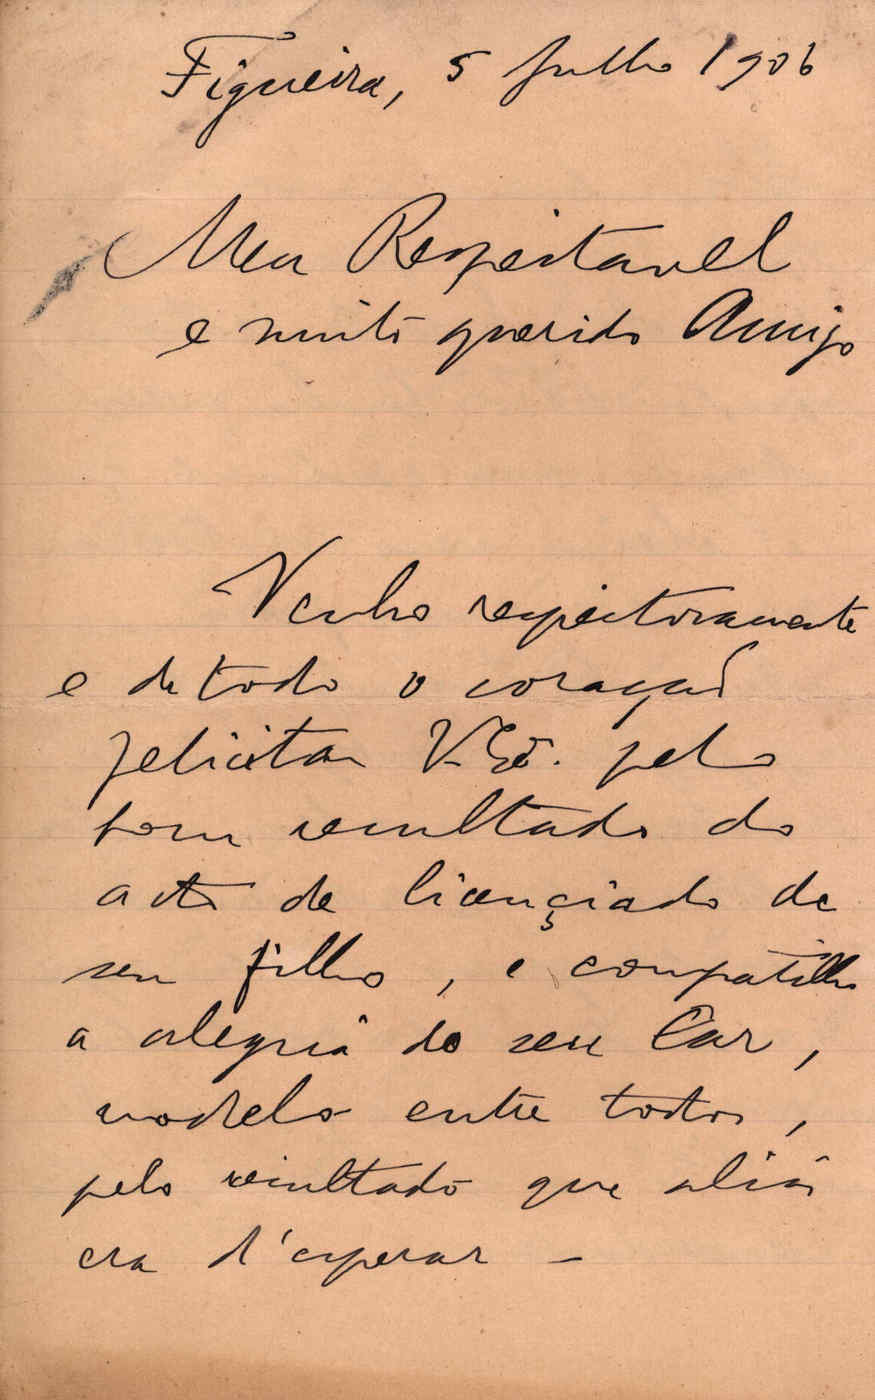 Figueira, 5 Julho 1906
Meu Respeitavel
e muito querido Amigo
Venho respeitosamente
e de todo o coração
felicitar V. Exª. pelo
bom resultado do
acto de licenciado de
seu filho, e compatilho
a alegria do seu Lar,
modelo entre todos,
pelo resultado que aliás
era d'esperar –